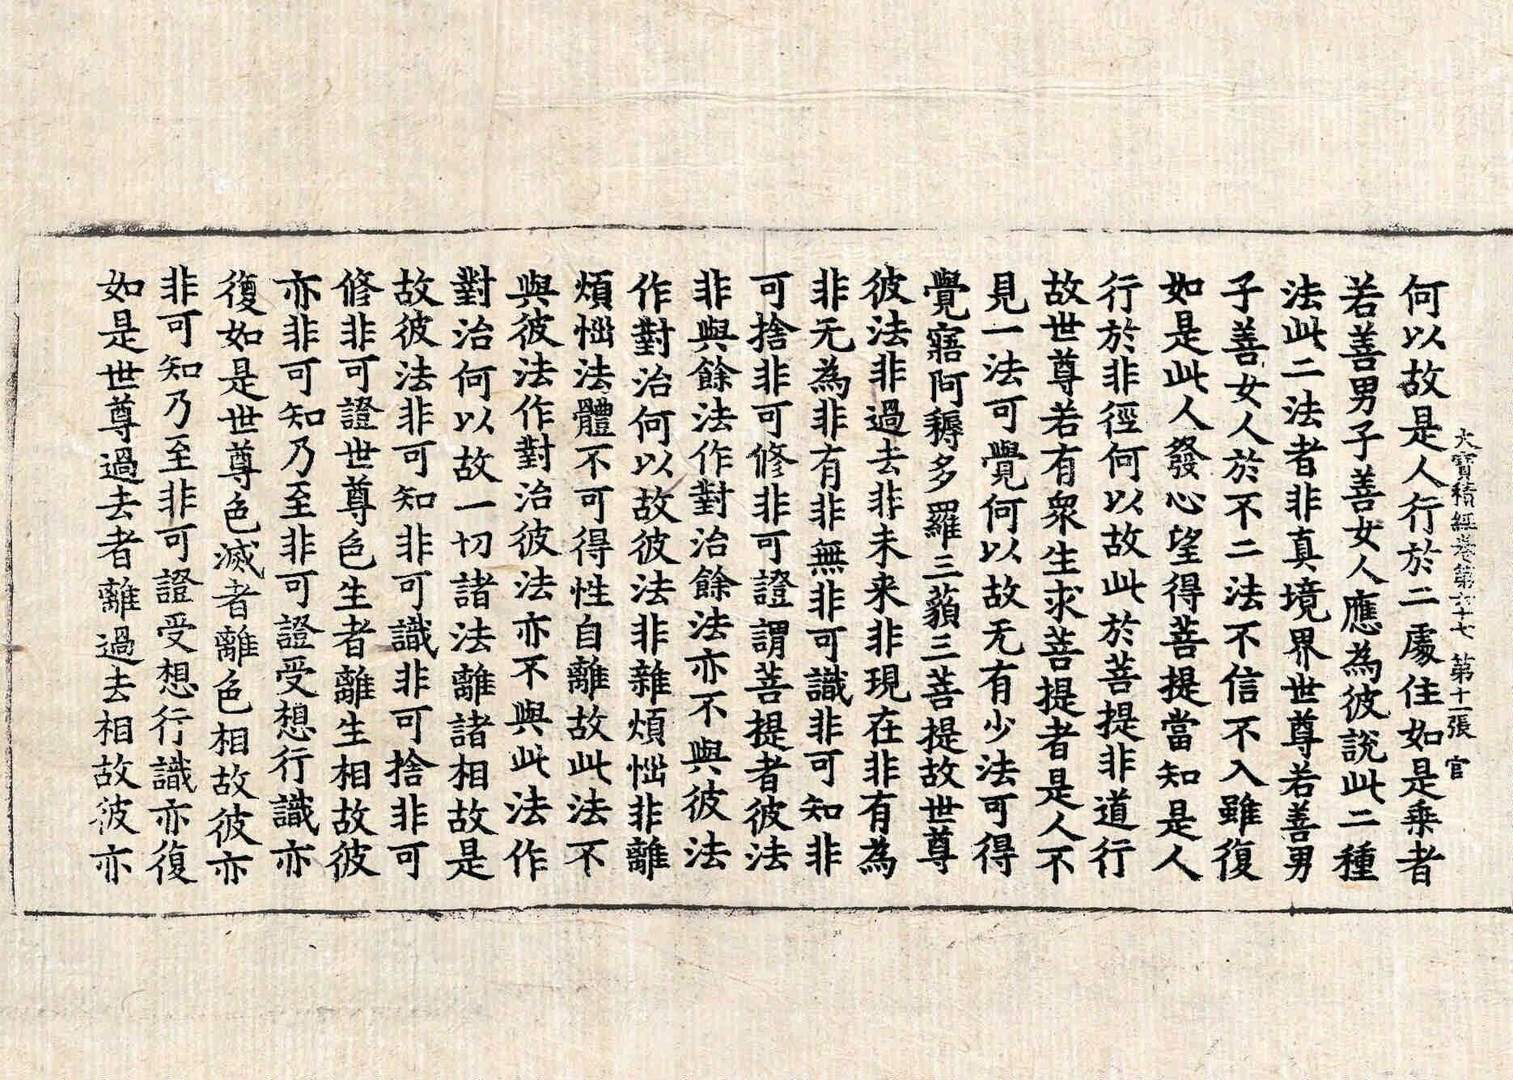 大寶積經卷第六十七 第十一張 官
何以故是人行於二處住如是乘者
若善男子善女人應為彼說此二種
法此二法者非真境界世尊若善男
子善女人於不二法不信不入雖復
如是此人發心望得菩提當知是人
行於非徑何以故此於菩提非道行
故世尊若有衆生求菩提者是人不
見一法可覺何以故无有少法可得
覺寤阿耨多羅三藐三菩提故世尊
彼法非過去非未来非現在非有為
非无為非有非無非可識非可知非
可捨非可修非可證謂菩提者彼法
非與餘法作對治餘法亦不與彼法
作對治何以故彼法非雜煩惱非離
煩惱法體不可得性自離故此法不
與彼法作對治彼法亦不與此法作
對治何以故一切諸法離諸相故是
故彼法非可知非可識非可捨非可
修非可證世尊色生者離生相故彼
亦非可知乃至非可證受想行識亦
復如是世尊色滅者離色相故彼亦
非可知乃至非可證受想行識亦復
如是世尊過去者離過去相故彼亦